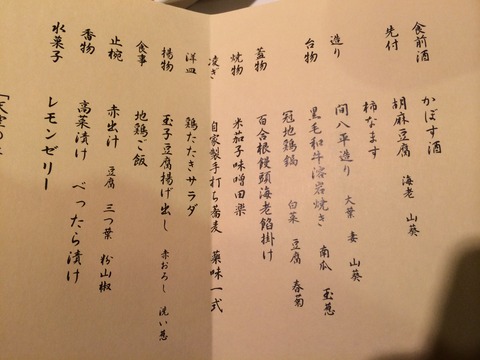 食前酒 かぼす酒
先付 胡麻豆腐 海老 山葵
柿なます
造り 間八平造り 大葉 妻 山葵
台物 黒毛和牛溶岩焼き 南瓜 玉葱
冠地鶏鍋 白菜 豆腐 春菊
蓋物 百合根饅頭海老餡掛け
焼物 米茄子味噌田楽
凌ぎ 自家製手打ち蕎麦 薬味一式
洋皿 鶏たたきサラダ
揚物 玉子豆腐揚げ出し 赤おろし 洗い葱
食事 地鶏ご飯
止椀 赤出汁 豆腐 三つ葉 粉山椒
香物 高菜漬け べったら漬け
水菓子 レモンゼリー